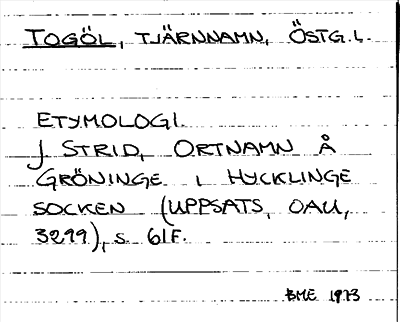 TOGÖL, TJÄRNNAMN, ÖSTG.L.
ETYMOLOGI.
J STRID, ORTNAMN Å
GRÖNINGE I HYCKLINGE
SOCKEN (UPPSATS, OAU,
3299), S. 61F.
BME 1973